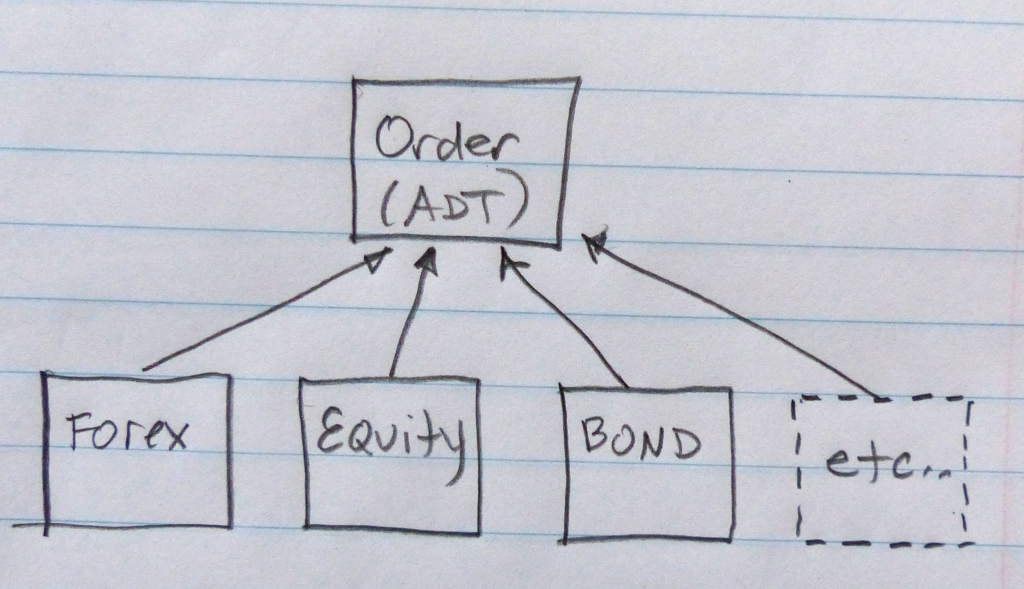 Order
(ADT)
Forex
Equity
BOND
etc...